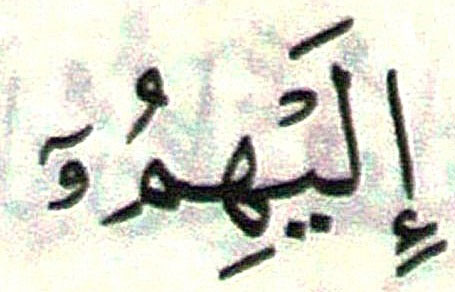 إِلَيْهِمُۥٓ